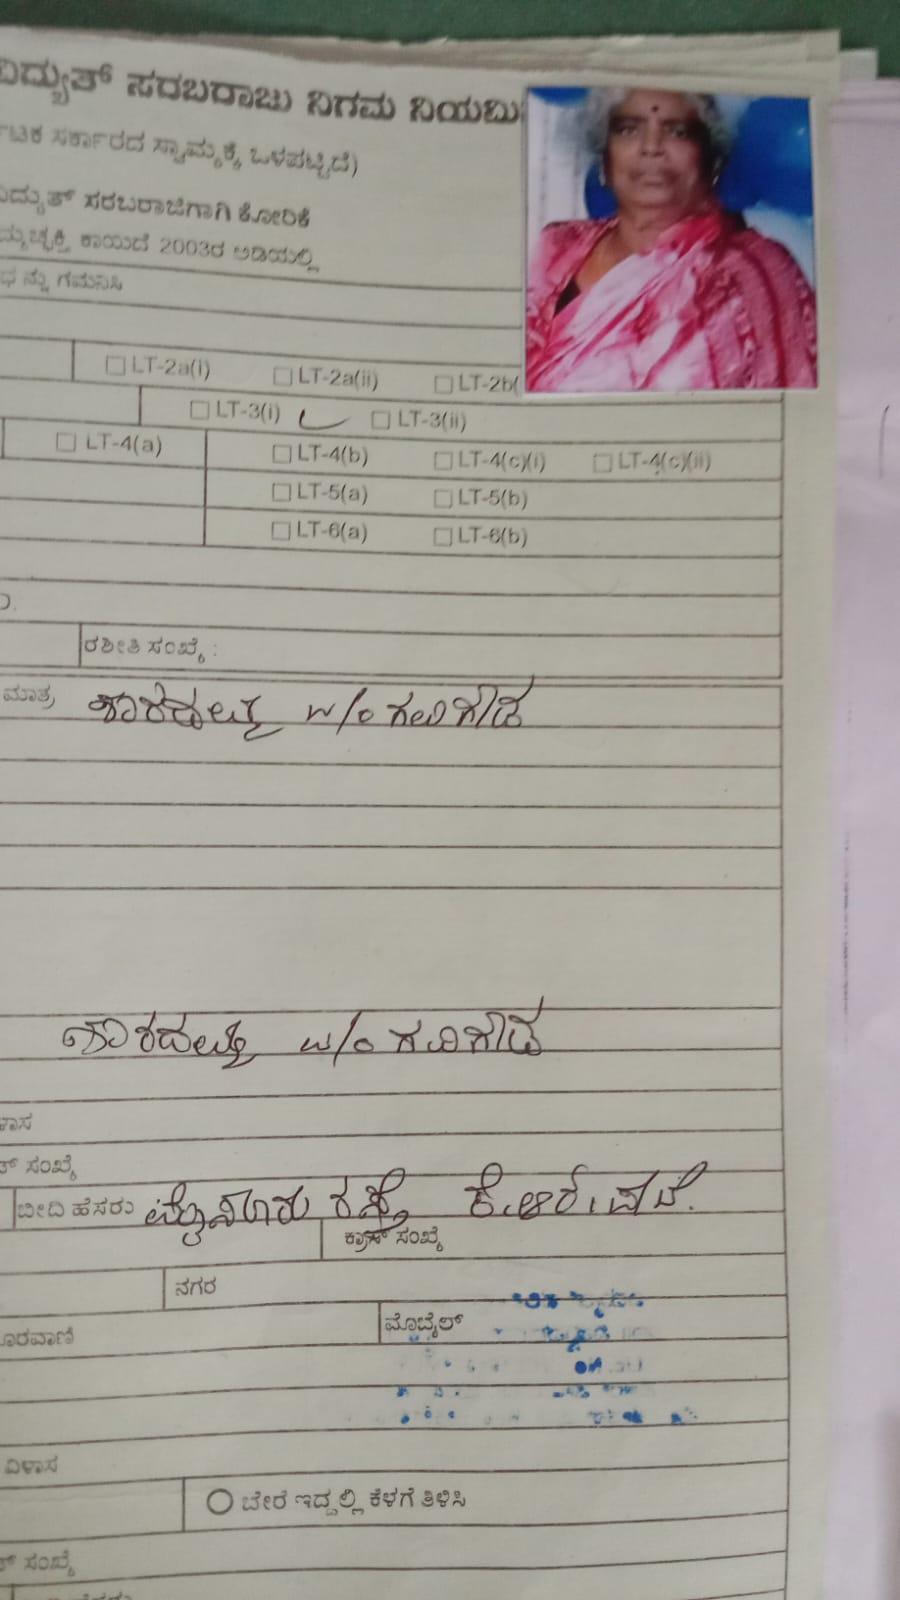 ವಿದ್ಯುತ್ ಸರಬರಾಜು ನಿಗಮ ನಿಯಮಿ
ಟಕ ಸರ್ಕಾರದ ಸ್ವಾಮ್ಯಕ್ಕೆ ಒಳಪಟ್ಟಿದೆ)
ವಿದ್ಯುತ್ ಸರಬರಾಜಿಗಾಗಿ ಕೋರಿಕೆ
ದ್ಯುಚ್ಛಕ್ತಿ ಕಾಯಿದೆ 2003ರ ಅಡಿಯಲ್ಲಿ
ನ್ನು ಗಮನಿಸಿ
☐ LT-2a(i) ☐ LT-2a(ii) ☐ LT-2b(
☐ LT-3(i) ☐ LT-3(ii)
☐ LT-4(a) ☐ LT-4(b) ☐ LT-4(c)(i) ☐ LT-4(c)(ii)
☐ LT-5(a) ☐ LT-5(b)
☐ LT-6(a) ☐ LT-6(b)
ರಶೀತಿ ಸಂಖ್ಯೆ :
ಮಾತ್ರ w/o ಗವಿಗೌಡ
w/o ಗವಿಗೌಡ
ಳಾಸ
ತ್ ಸಂಖ್ಯೆ
ಬೀದಿ ಹೆಸರು ಮೈಸೂರು ರಸ್ತೆ ಕೆ.ಆರ್.ಪೇಟೆ.
ಕ್ರಾಸ್ ಸಂಖ್ಯೆ
ನಗರ
ೂರವಾಣಿ ಮೊಬೈಲ್
ವಿಳಾಸ
ಬೇರೆ ಇದ್ದಲ್ಲಿ ಕೆಳಗೆ ತಿಳಿಸಿ
ತ್ ಸಂಖ್ಯೆ